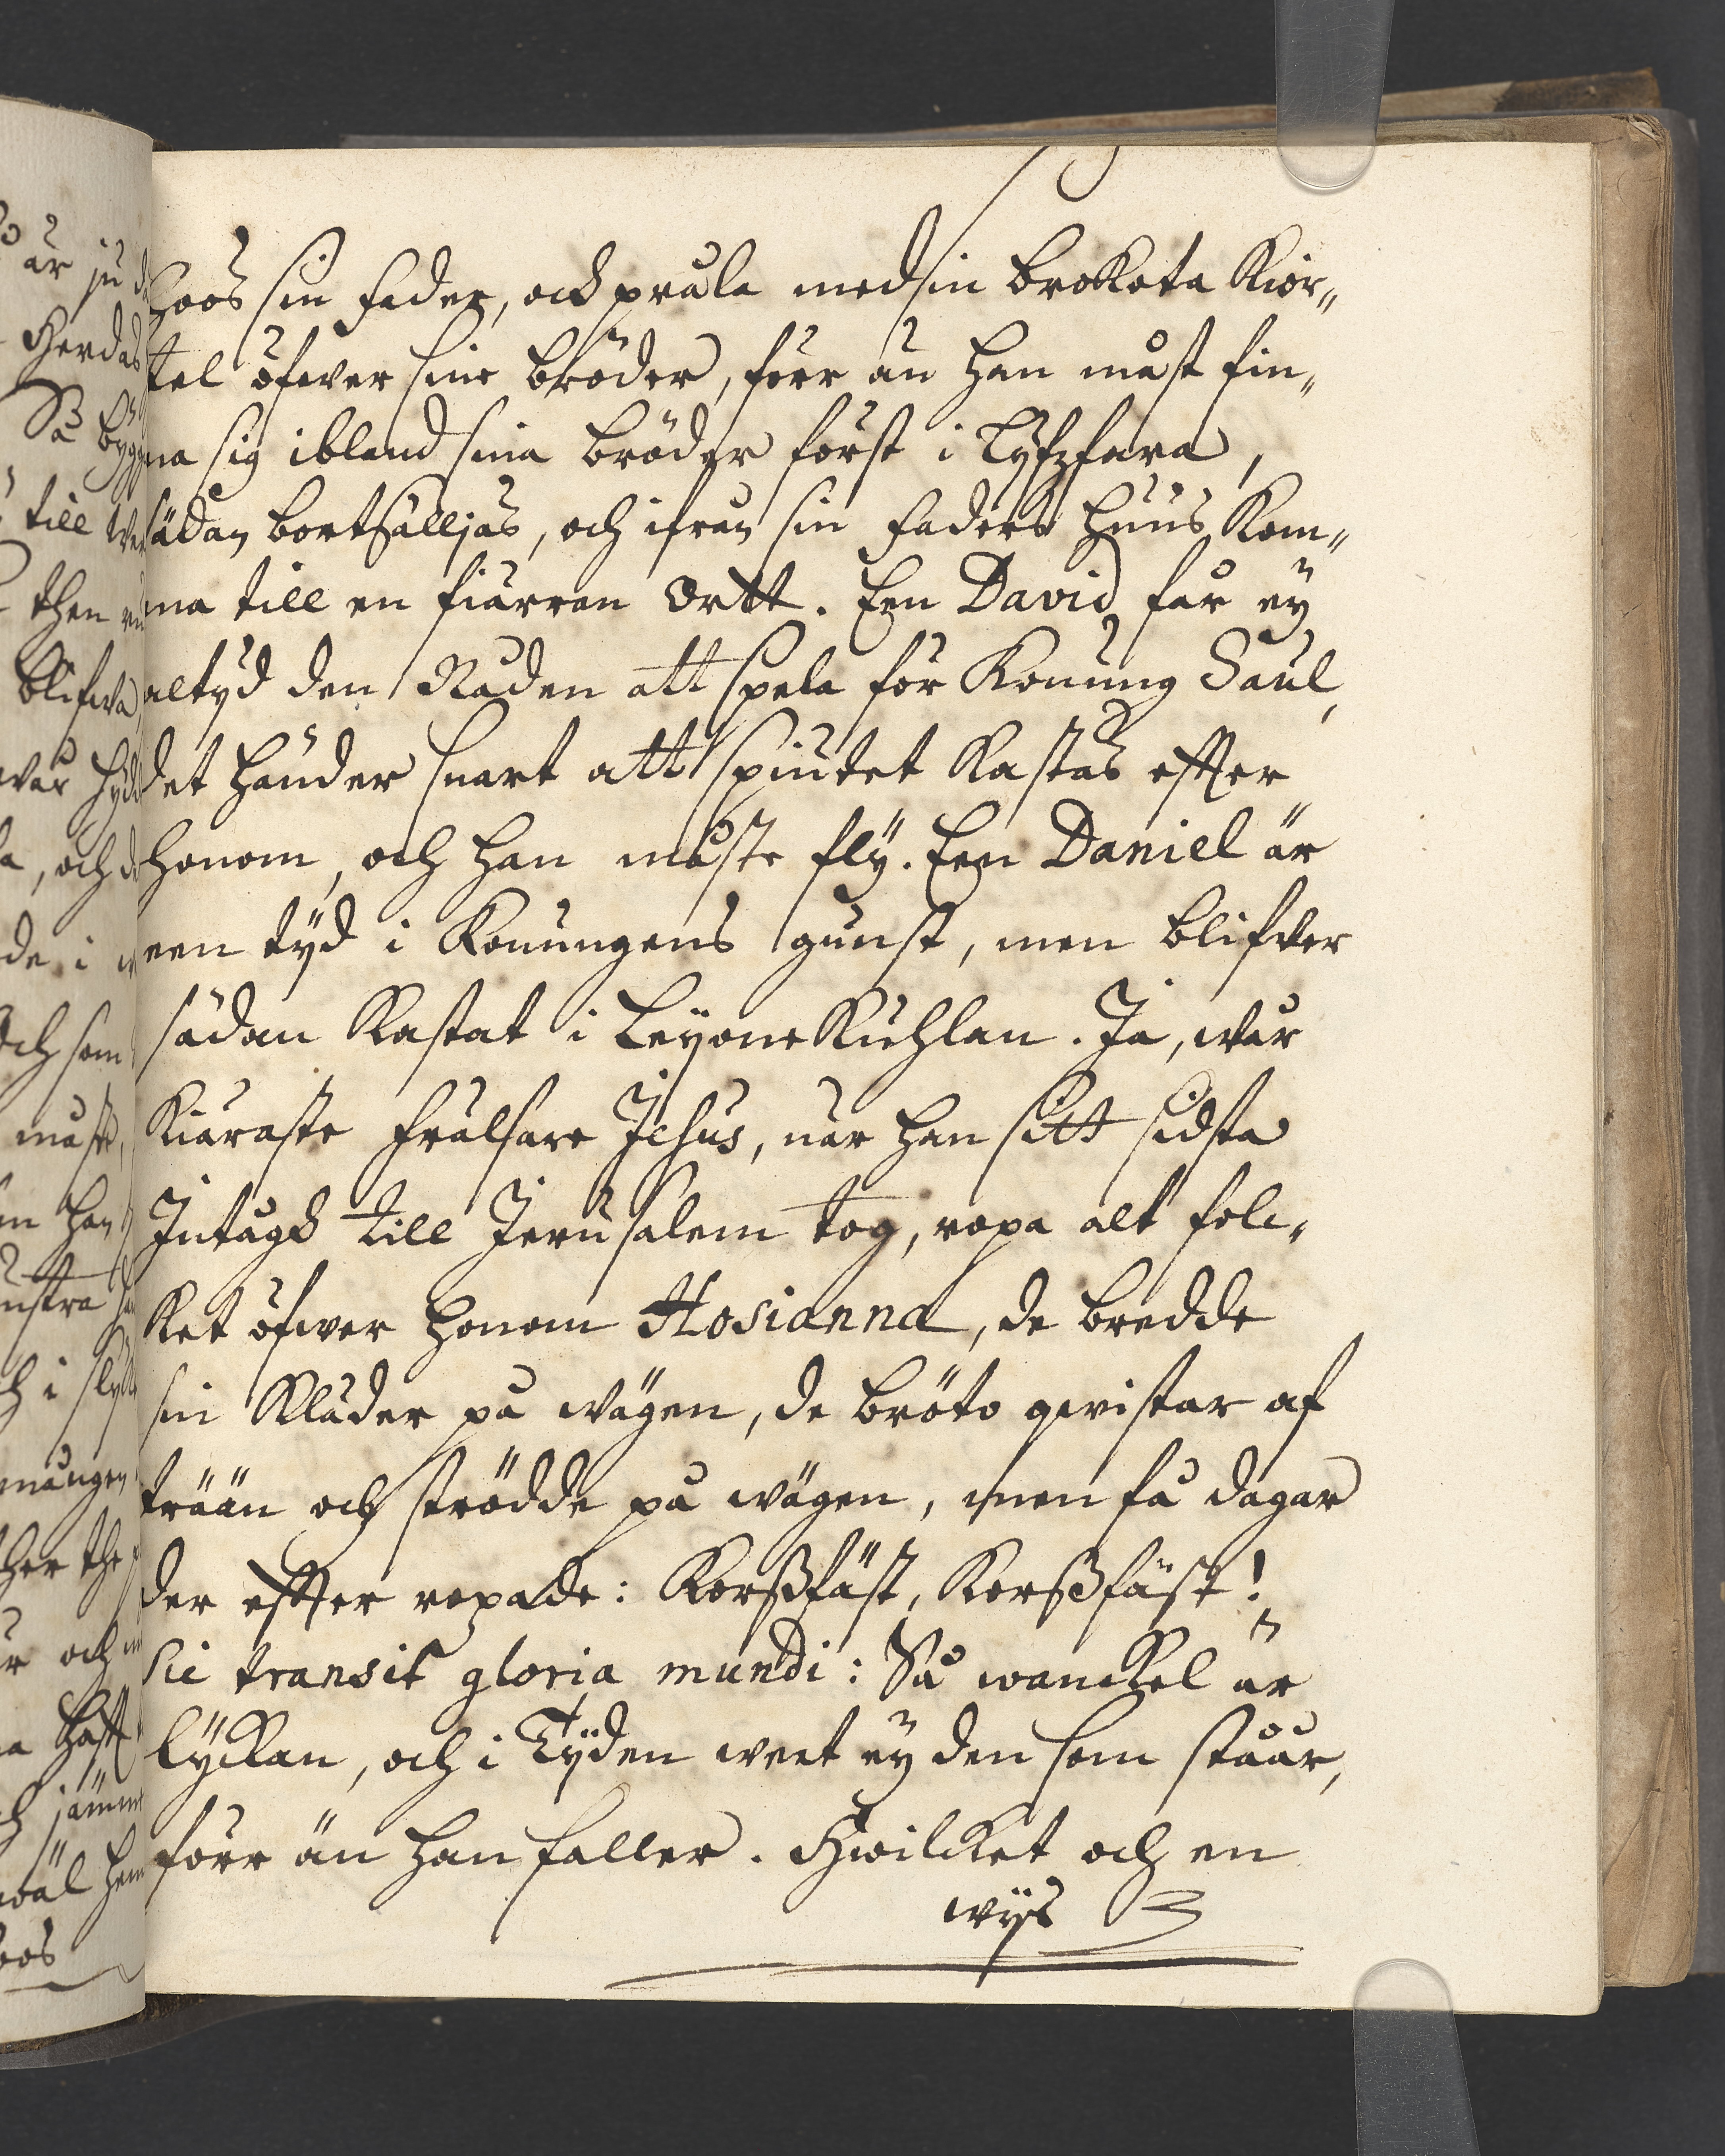 hoos sin Fader, och pråla med sin brokota Kior„
tel öfwer sine bröder, förr än han måst fin„
na sig ibland sina bröder först i Lyfzfara,
sädan bortsälljas, och ifrån sin Faders huus kom„
ma till en fiärran Ortt. Een David får ey
altyd den Nåden att spela för Konung Saul,
det händer snart att spiutet kastas effter
honom, och han måste flÿ. Een Daniel är
een tÿd i Konungens gunst, men blifver
sädan kastat i Leyone Kuhlan. Ja, wår
kiäraste Frälsare Jesus, när han sitt sidsta
Intågh till Jerusalem tog, ropa alt fole„
ket öfwer honom Hosianna, de bredde
sin Kläder på wägen, de bröto qwistar af
trään och strödde på wägen, men få dagar
der effter ropade: Korßfäst, Korßfäst!
Sic transit gloria mundi: Så wanckel är
lÿckan, och i Tÿden weet ey den som ståår,
förr än han faller. Hwilcket och en
wÿs
är ju
Herdas
Så bygg
till
then
blifwa
wår
, och
de i
och som
måste,
han
och i
mången
the
och
jämm
wäl
hoos